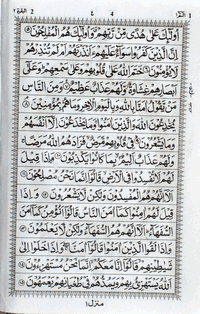 البقرة ٢ 2 ٤ 1 الٓمّٓ ١
اُولٰٓئِكَ عَلٰى هُدًى مِّنْ رَّبِّهِمْ وَاُولٰٓئِكَ هُمُ الْمُفْلِحُوْنَ ۝
اِنَّ الَّذِيْنَ كَفَرُوْا سَوَآءٌ عَلَيْهِمْ ءَاَنْذَرْتَهُمْ اَمْ لَمْ تُنْذِرْهُمْ
لَا يُؤْمِنُوْنَ ۝ خَتَمَ اللّٰهُ عَلٰى قُلُوْبِهِمْ وَعَلٰى سَمْعِهِمْ وَعَلٰٓى
اَبْصَارِهِمْ غِشَاوَةٌ وَّلَهُمْ عَذَابٌ عَظِيْمٌ ۝ وَمِنَ النَّاسِ
مَنْ يَّقُوْلُ اٰمَنَّا بِاللّٰهِ وَبِالْيَوْمِ الْاٰخِرِ وَمَا هُمْ بِمُؤْمِنِيْنَ ۝
يُخٰدِعُوْنَ اللّٰهَ وَالَّذِيْنَ اٰمَنُوْا وَمَا يَخْدَعُوْنَ اِلَّآ اَنْفُسَهُمْ
وَمَا يَشْعُرُوْنَ ۝ فِيْ قُلُوْبِهِمْ مَّرَضٌ فَزَادَهُمُ اللّٰهُ مَرَضًا
وَلَهُمْ عَذَابٌ اَلِيْمٌ بِمَا كَانُوْا يَكْذِبُوْنَ ۝ وَاِذَا قِيْلَ
لَهُمْ لَا تُفْسِدُوْا فِى الْاَرْضِ قَالُوْٓا اِنَّمَا نَحْنُ مُصْلِحُوْنَ ۝
اَلَآ اِنَّهُمْ هُمُ الْمُفْسِدُوْنَ وَلٰكِنْ لَّا يَشْعُرُوْنَ ۝ وَاِذَا
قِيْلَ لَهُمْ اٰمِنُوْا كَمَآ اٰمَنَ النَّاسُ قَالُوْٓا اَنُؤْمِنُ كَمَآ اٰمَنَ
السُّفَهَآءُ اَلَآ اِنَّهُمْ هُمُ السُّفَهَآءُ وَلٰكِنْ لَّا يَعْلَمُوْنَ ۝
وَاِذَا لَقُوا الَّذِيْنَ اٰمَنُوْا قَالُوْٓا اٰمَنَّا وَاِذَا خَلَوْا اِلٰى
شَيٰطِيْنِهِمْ قَالُوْٓا اِنَّا مَعَكُمْ اِنَّمَا نَحْنُ مُسْتَهْزِءُوْنَ ۝
اَللّٰهُ يَسْتَهْزِئُ بِهِمْ وَيَمُدُّهُمْ فِيْ طُغْيَانِهِمْ يَعْمَهُوْنَ ۝
منزل ١